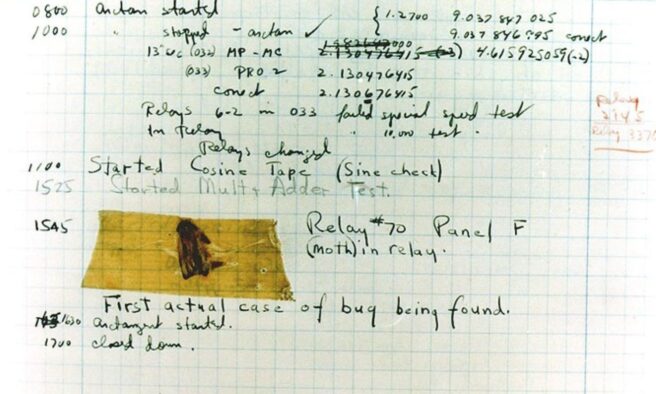 0800 arctan started { 1.2700 9.037 847 025
1000 " stopped - arctan ✓ 9.037 846 995 correct
13"uc (032) MP - MC 2.130476415 4.615925059(-2)
(033) PRO 2 2.130476415
correct 2.130676415
Relays 6-2 in 033 failed special speed test
In Relay " 10.000 test.
Relay
2145
Relay 3370
Relays changed
1100 Started Cosine Tape (Sine check)
1525 Started Mult + Adder Test.
1545 Relay #70 Panel F
(moth) in relay.
First actual case of bug being found.
1630 arctangent started.
1700 closed down.